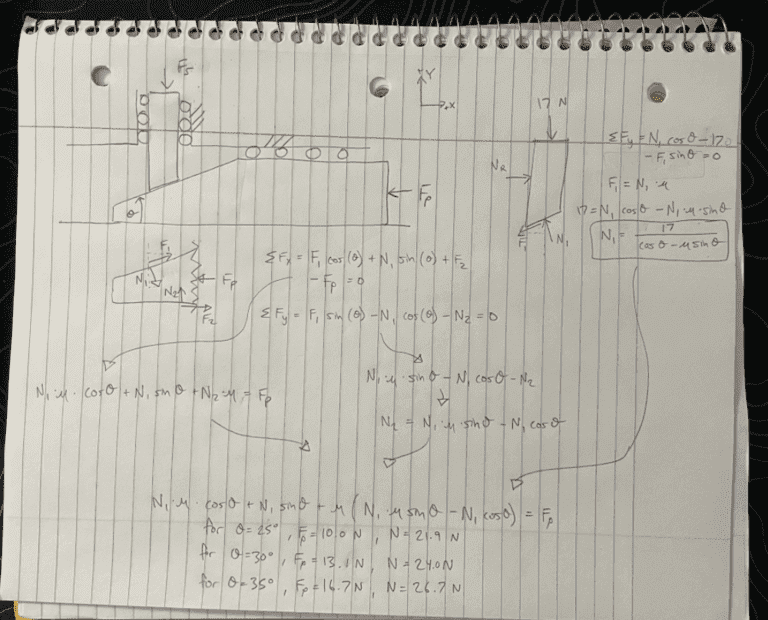 F_S
Y
x
F_P
θ
17 N
N_R
F_1
N_1
ΣF_y = N_1 cosθ - 17
- F_1 sinθ = 0
F_1 = N_1 · μ
17 = N_1 cosθ - N_1 · μ · sinθ
N_1 = 17 / (cosθ - μ sinθ)
F_1
N_1
N_2
F_P
F_2
ΣF_x = F_1 cos(θ) + N_1 sin(θ) + F_2
- F_P = 0
ΣF_y = F_1 sin(θ) - N_1 cos(θ) - N_2 = 0
N_1 · μ · sinθ - N_1 cosθ - N_2
N_1 · μ · cosθ + N_1 sinθ + N_2 · μ = F_P
N_2 = N_1 · μ · sinθ - N_1 cosθ
N_1 · μ · cosθ + N_1 sinθ + μ (N_1 · μ sinθ - N_1 cosθ) = F_P
for θ = 25°, F_P = 10.0 N, N = 21.9 N
for θ = 30°, F_P = 13.1 N, N = 24.0 N
for θ = 35°, F_P = 16.7 N, N = 26.7 N